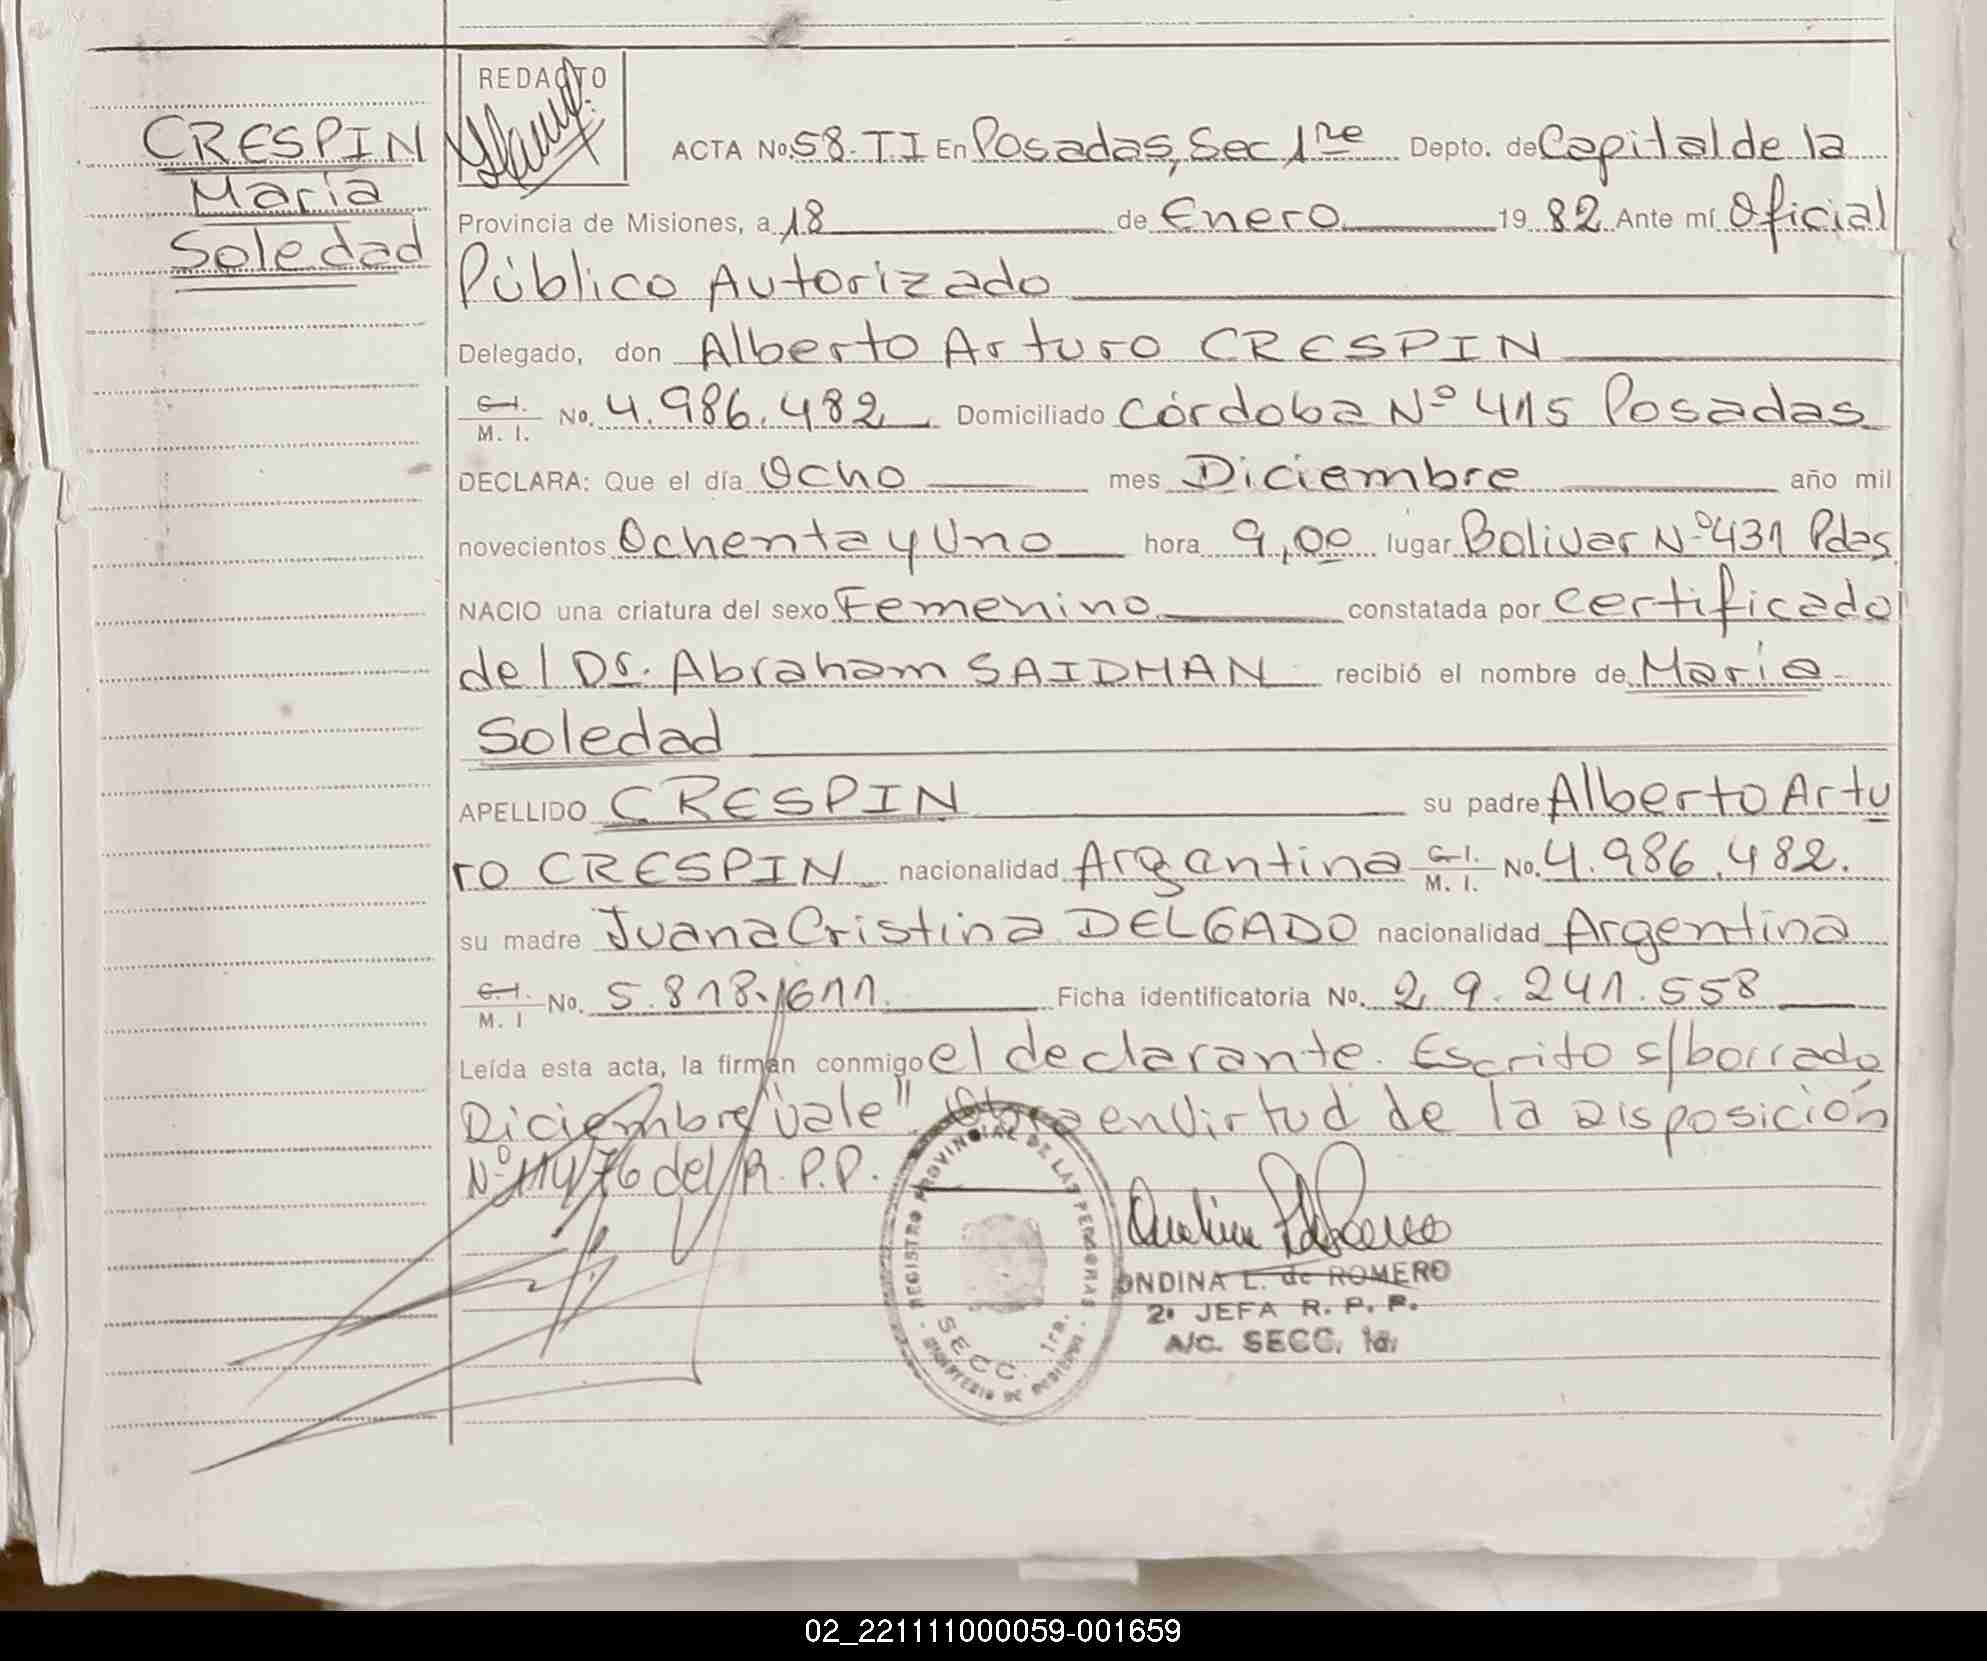 CRESPIN
María
Soledad
REDACTO
ACTA No. 58-T.I En Posadas, Sec 1re Depto. de Capital de la
Provincia de Misiones, a 18 de Enero 19 82 Ante mí Oficial
Público Autorizado
Delegado, don Alberto Arturo CRESPIN
C.I. / M. I. No. 4.986.482 Domiciliado Córdoba Nº 415 Posadas
DECLARA: Que el día Ocho mes Diciembre año mil
novecientos Ochenta y Uno hora 9,00 lugar Bolivar Nº 431 Pdas
NACIO una criatura del sexo Femenino constatada por certificado
del Dr. Abraham SAIDMAN recibió el nombre de María
Soledad
APELLIDO CRESPIN su padre Alberto Artu
ro CRESPIN nacionalidad Argentina C.I. / M. I. No. 4.986.482.
su madre Juana Cristina DELGADO nacionalidad Argentina
C.I. / M. I No. 5.818.611. Ficha identificatoria No. 29.241.558
Leída esta acta, la firman conmigo el declarante. Escrito s/borrado
Diciembre "vale". en Virtud de la Disposición
Nº 114/76 del R.P.P.
REGISTRO PROVINCIAL DE LAS PERSONAS
SECC. 1ra.
ONDINA L. de ROMERO
2ª JEFA R. P. P.
A/C. SECC. 1a.
02_221111000059-001659